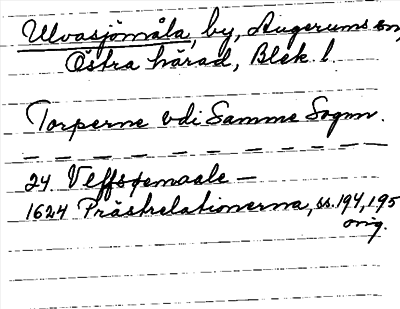 Ulvasjömåla, by, Augerums sn,
Östra härad, Blek. l.
Torperne vdi Samme Sognn.
24 Veffsøemaale —
1624 Prästrelationerna, ss. 194, 195
orig.